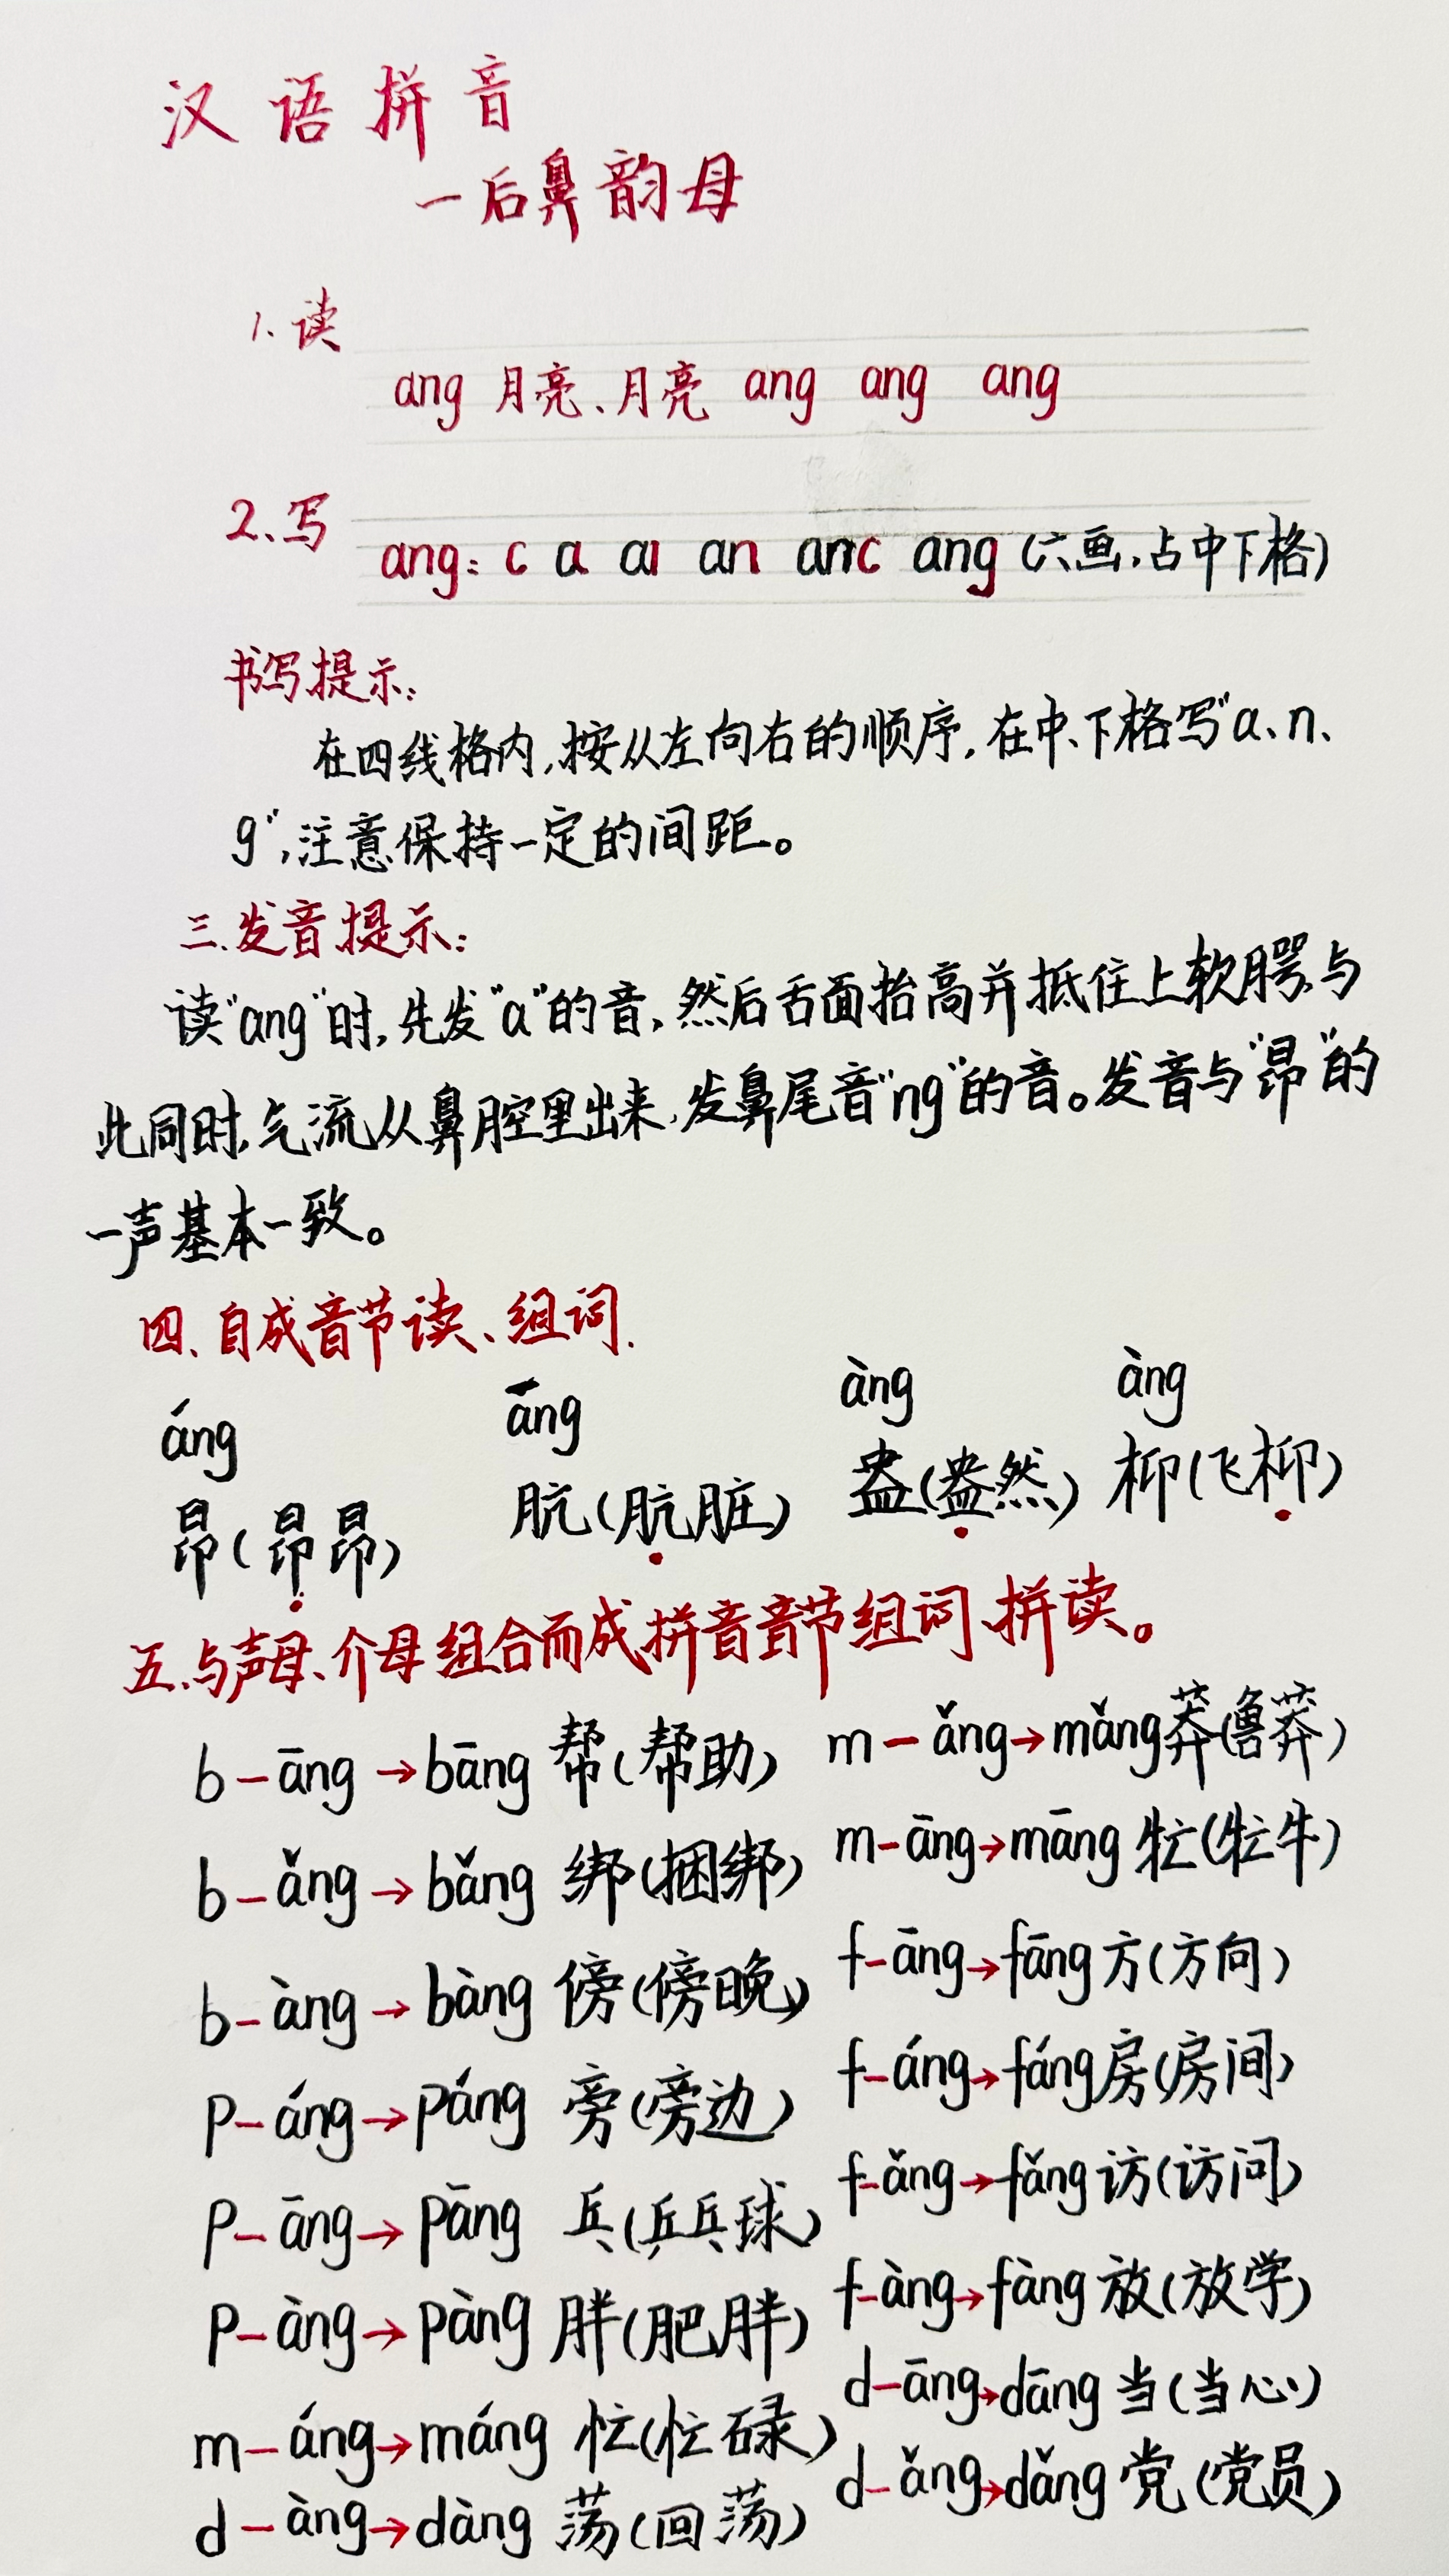 汉语拼音
一后鼻韵母
1.读
ang 月亮、月亮 ang ang ang
2.写
ang: c a aı an anc ang (六画,占中下格)
书写提示:
在四线格内,按从左向右的顺序,在中、下格写"a、n、
g",注意保持一定的间距。
三.发音提示:
读"ang"时,先发"a"的音,然后舌面抬高并抵住上软腭,与
此同时,气流从鼻腔里出来,发鼻尾音"ng"的音。发音与"昂"的
一声基本一致。
四、自成音节读、组词.
áng āng àng àng
昂(昂昂) 肮(肮脏) 盎(盎然) 枊(飞枊)
五.与声母、介母组合而成拼音音节组词、拼读。
b-āng→bāng 帮(帮助) m-ǎng→mǎng莽(鲁莽)
b-ǎng→bǎng 绑(捆绑) m-āng→māng 牤(牤牛)
b-àng→bàng 傍(傍晚) f-āng→fāng方(方向)
p-áng→páng 旁(旁边) f-áng→fáng房(房间)
p-āng→pāng 乓(乒乓球) f-ǎng→fǎng访(访问)
p-àng→pàng 胖(肥胖) f-àng→fàng 放(放学)
m-áng→máng 忙(忙碌) d-āng→dāng 当(当心)
d-àng→dàng 荡(回荡) d-ǎng→dǎng 党(党员)